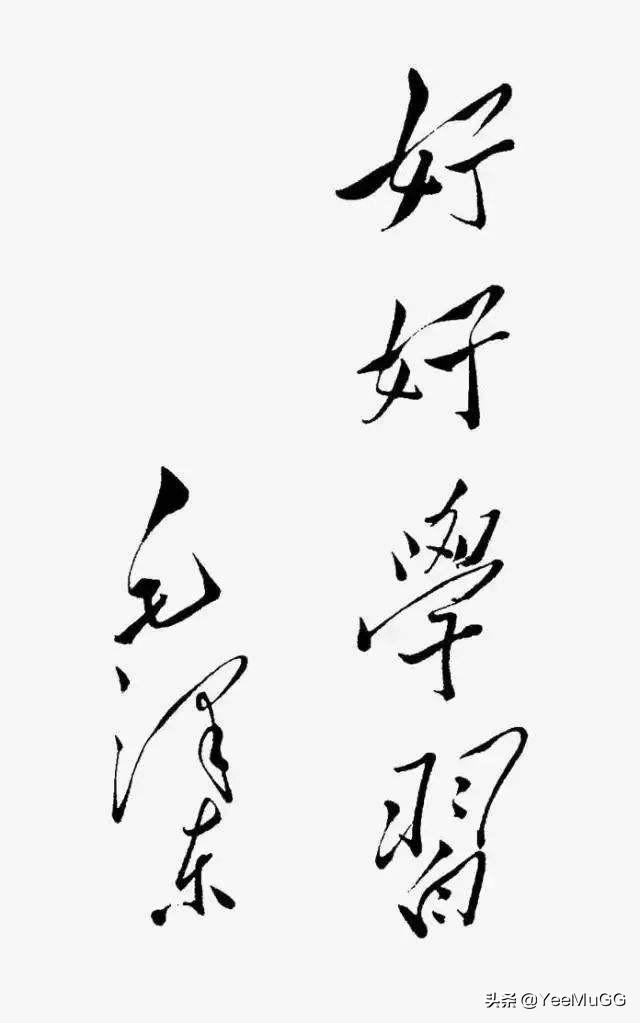 好好學習
毛泽东
头条 @YeeMuGG